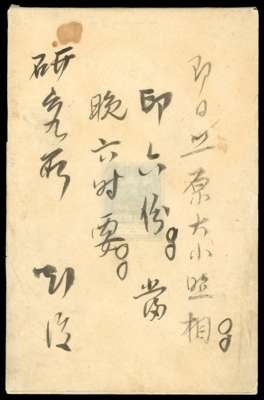 即日照原大小照相。
印六份。当
晚六时要。
研究所